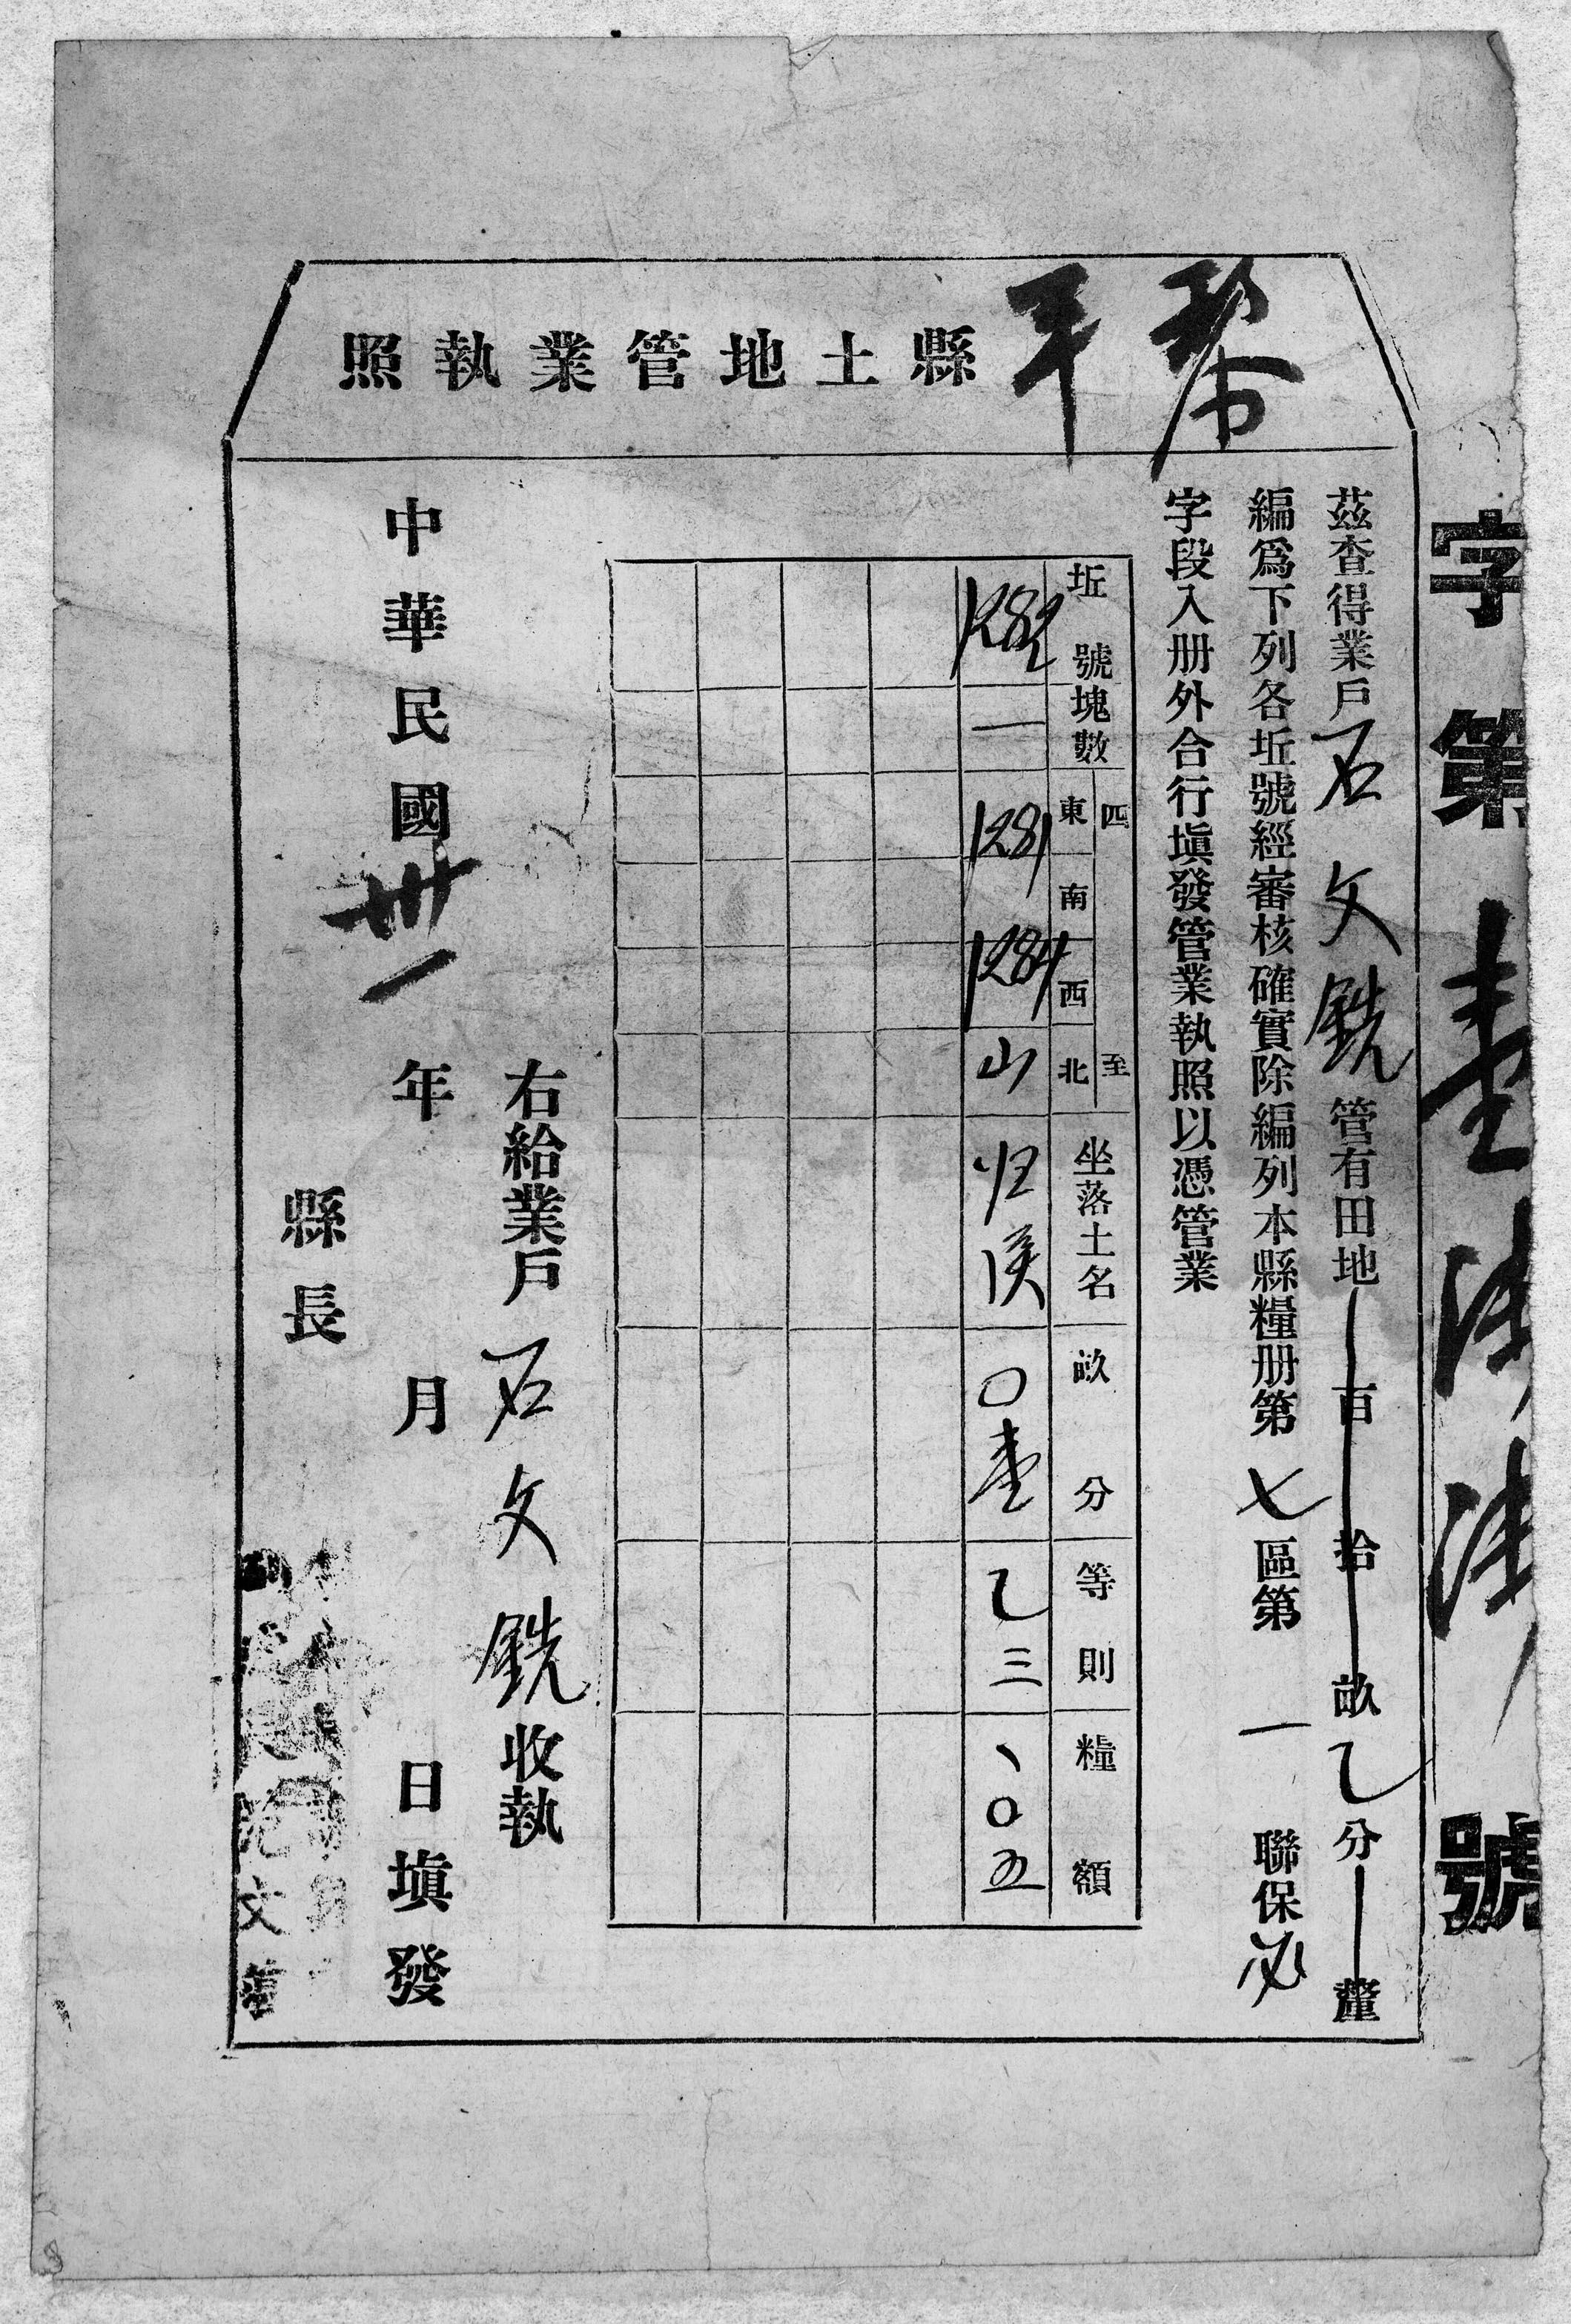 黎平縣土地管業執照
字第壹　號
茲查得業戶石文銑管有田地百拾畝乙分釐
編爲下列各坵號經審核確實除編列本縣糧册第七區第一聯保必
字段入册外合行塡發管業執照以憑管業
坵號 塊數 四至 東 南 西 北 坐落土名 畝分 等則 糧額
1282 一 1281 1284 山 归 〇壹 乙三 、〇五
右給業戶石文銑收執
中華民國卅一年 月 日塡發
縣長